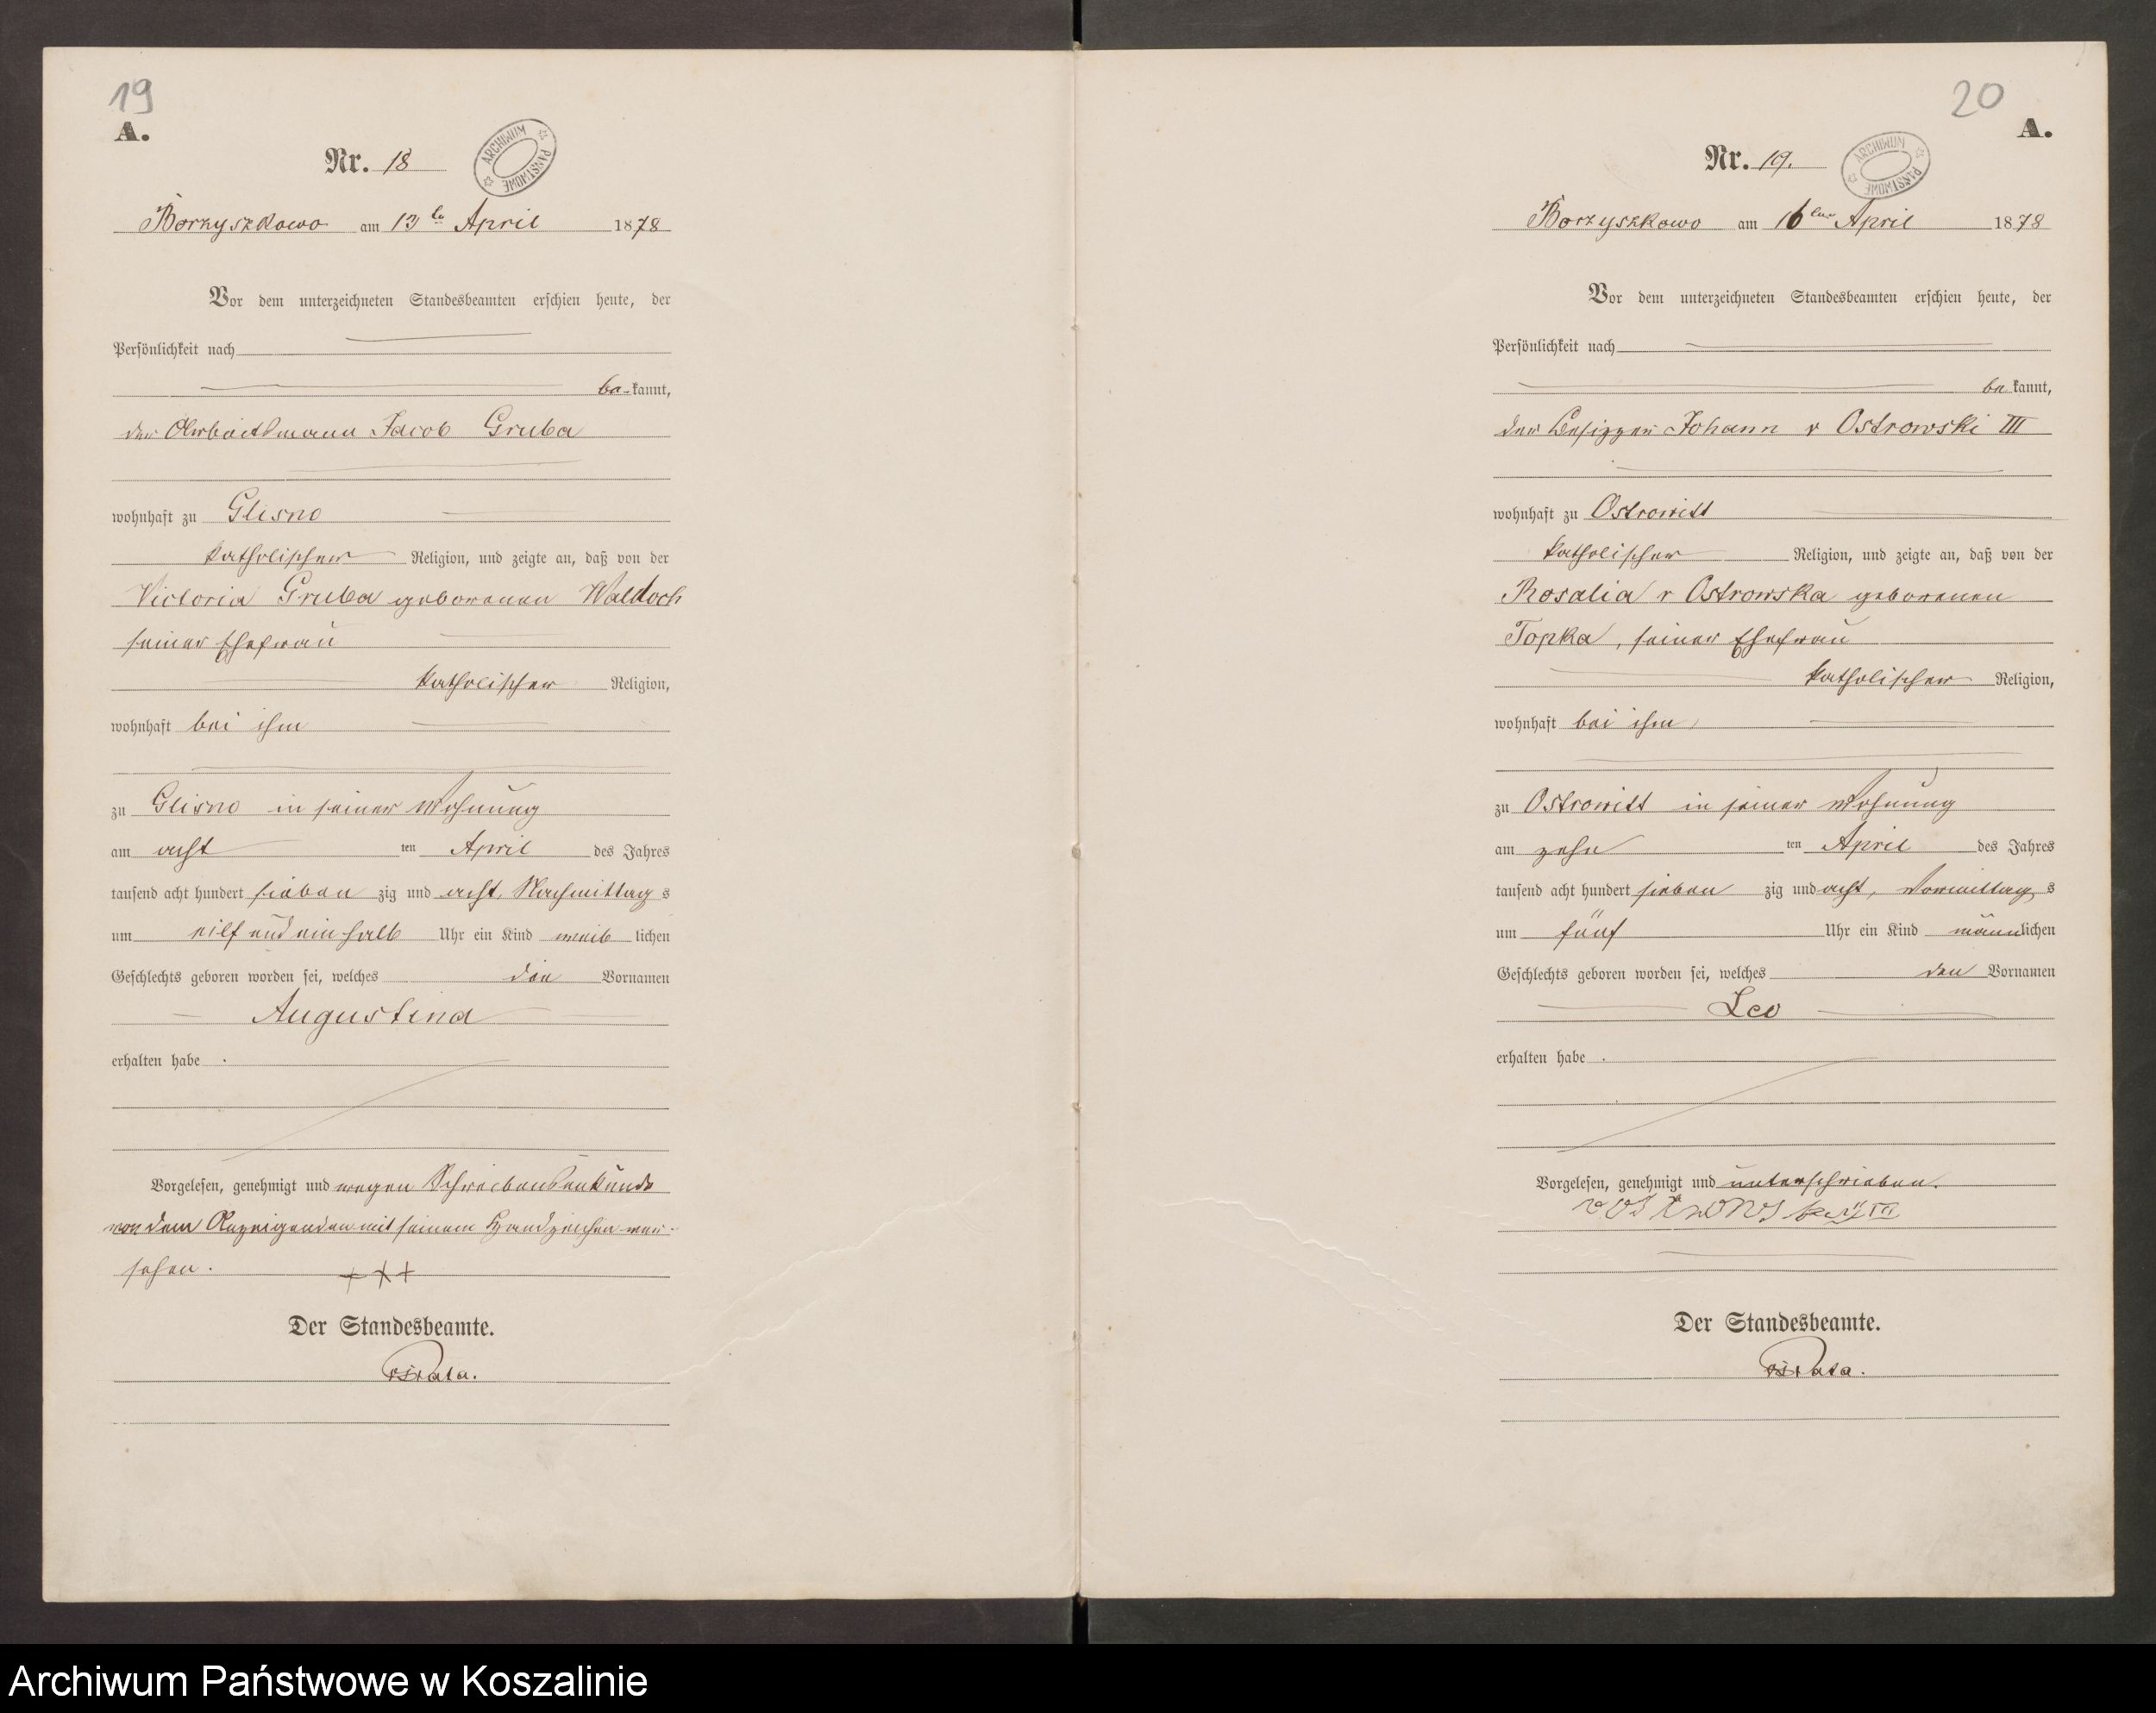 19
A.
Nr. 18
ARCHIWUM PAŃSTWOWE
Borzyszkowo am 13 te April 1878
Vor dem unterzeichneten Standesbeamten erschien heute, der
Persönlichkeit nach
be kannt,
der Arbeitsmann Jacob Gruba
wohnhaft zu Glisno
katholischer Religion, und zeigte an, daß von der
Victoria Gruba geborenen Waldoch
seiner Ehefrau
katholischer Religion,
wohnhaft bei ihm
zu Glisno in seiner Wohnung
am acht ten April des Jahres
tausend acht hundert sieben zig und acht, Nachmittag s
um eilf und ein halb Uhr ein Kind weib lichen
Geschlechts geboren worden sei, welches den Vornamen
Augustina
erhalten habe .
Vorgelesen, genehmigt und wegen Schreibensunkunde
von dem Anzeigenden mit seinem Handzeichen ver-
sehen. +++
Der Standesbeamte.
Pata.
20
A.
Nr. 19.
ARCHIWUM PAŃSTWOWE
Borzyszkowo am 16 ten April 1878
Vor dem unterzeichneten Standesbeamten erschien heute, der
Persönlichkeit nach
be kannt,
der Besitzer Johann v Ostrowski III
wohnhaft zu Ostrowitt
katholischer Religion, und zeigte an, daß von der
Rosalia v Ostrowska geborenen
Topka, seiner Ehefrau
katholischer Religion,
wohnhaft bei ihm,
zu Ostrowitt in seiner Wohnung
am zehn ten April des Jahres
tausend acht hundert sieben zig und acht, Vormittag s
um fünf Uhr ein Kind männlichen
Geschlechts geboren worden sei, welches den Vornamen
Leo
erhalten habe .
Vorgelesen, genehmigt und unterschrieben.
Der Standesbeamte.
Pata.
Archiwum Państwowe w Koszalinie